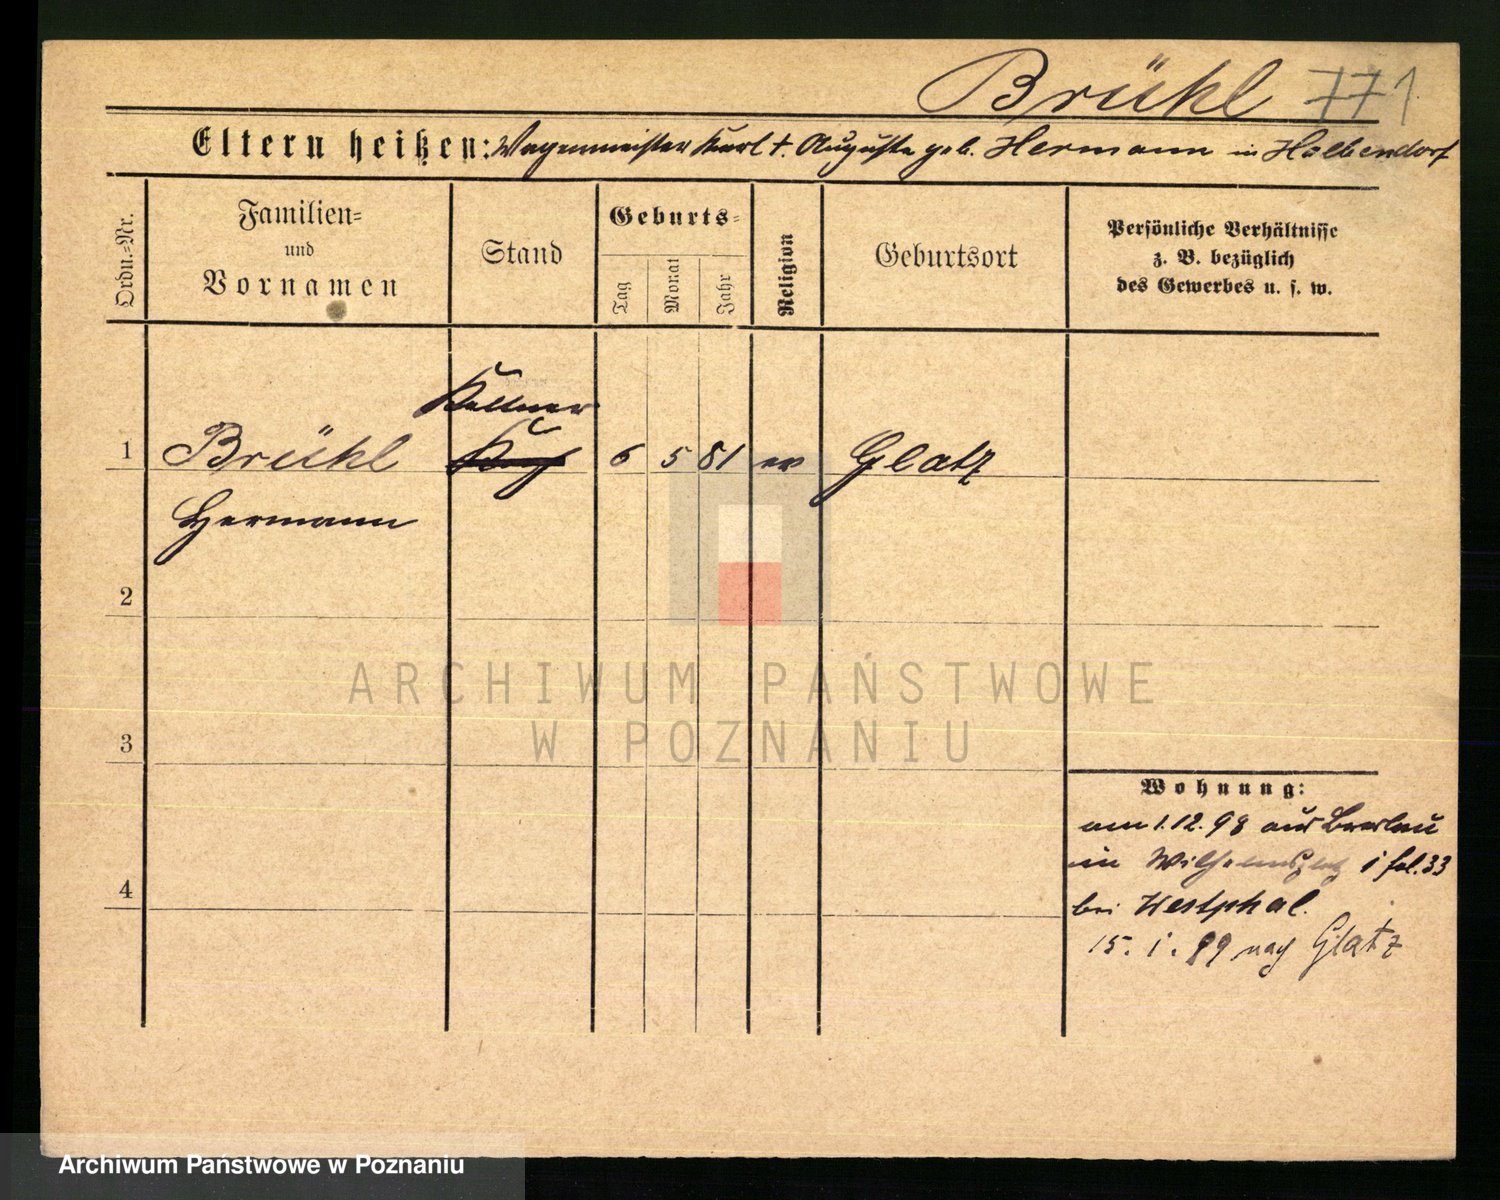 Brühl 771
Eltern heißen: Wagenmeister Karl †. Auguste geb. Hermann in Halbendorf
Ordn.-Nr.
Familien-
und
Vornamen
Stand
Geburts-
Tag
Monat
Jahr
Religion
Geburtsort
Persönliche Verhältnisse
z. B. bezüglich
des Gewerbes u. s. w.
Kellner
1 Brühl 6 5 81 ev Glatz
Hermann
2
3
4
Wohnung:
am 1.12.98 aus Breslau
in Wilhelmsplatz 1 fol. 33
bei Westphal.
15. 1. 99 nach Glatz
ARCHIWUM PAŃSTWOWE
W POZNANIU
Archiwum Państwowe w Poznaniu